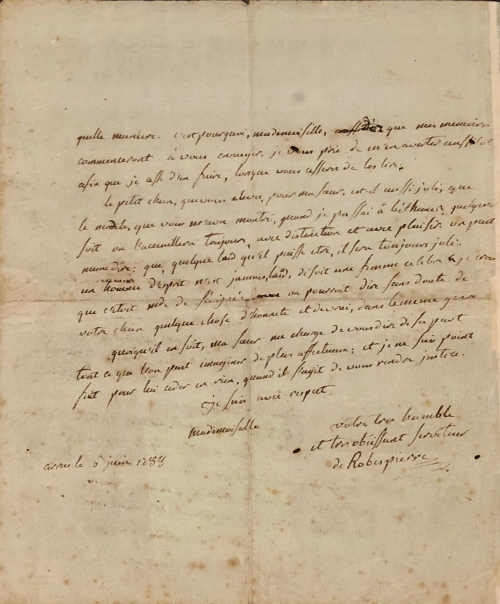 quelle maniere. c'est pourquoi, mademoiselle, que mes memoires
commenceront à vous ennuyer, je vous prie de m'en avertir aussitot
afin que je cesse d'en faire, lorsque vous cesserez de les lire.
le petit chien, que vous elevez, pour ma sœur, est-il aussi joli, que
le modele, que vous m'avez montré, quand je passai à béthune? quel qu'il
soit on l'accueillera toujours, avec distinction et avec plaisir. on peut
meme dire; que, quelque laid qu'il puisse etre, il sera toujours joli.
un homme d'esprit n'est jamais laid, disoit une femme celebre je crois
que c'etoit mde de Sévigné. on pourroit dire sans doute de
votre chien quelque chose d'honnete et de vrai, dans le meme genre
quoiqu'il en soit, ma sœur me charge de vous dire de sa part
tout ce que l'on peut imaginer de plus affectueux; et je ne suis point
fait pour lui ceder en rien, quand il s'agit de vous rendre justice.
Je suis avec respect
Mademoiselle
votre tres humble
et tres obéissant serviteur
de Robespierre
arras le 6 juin 1788